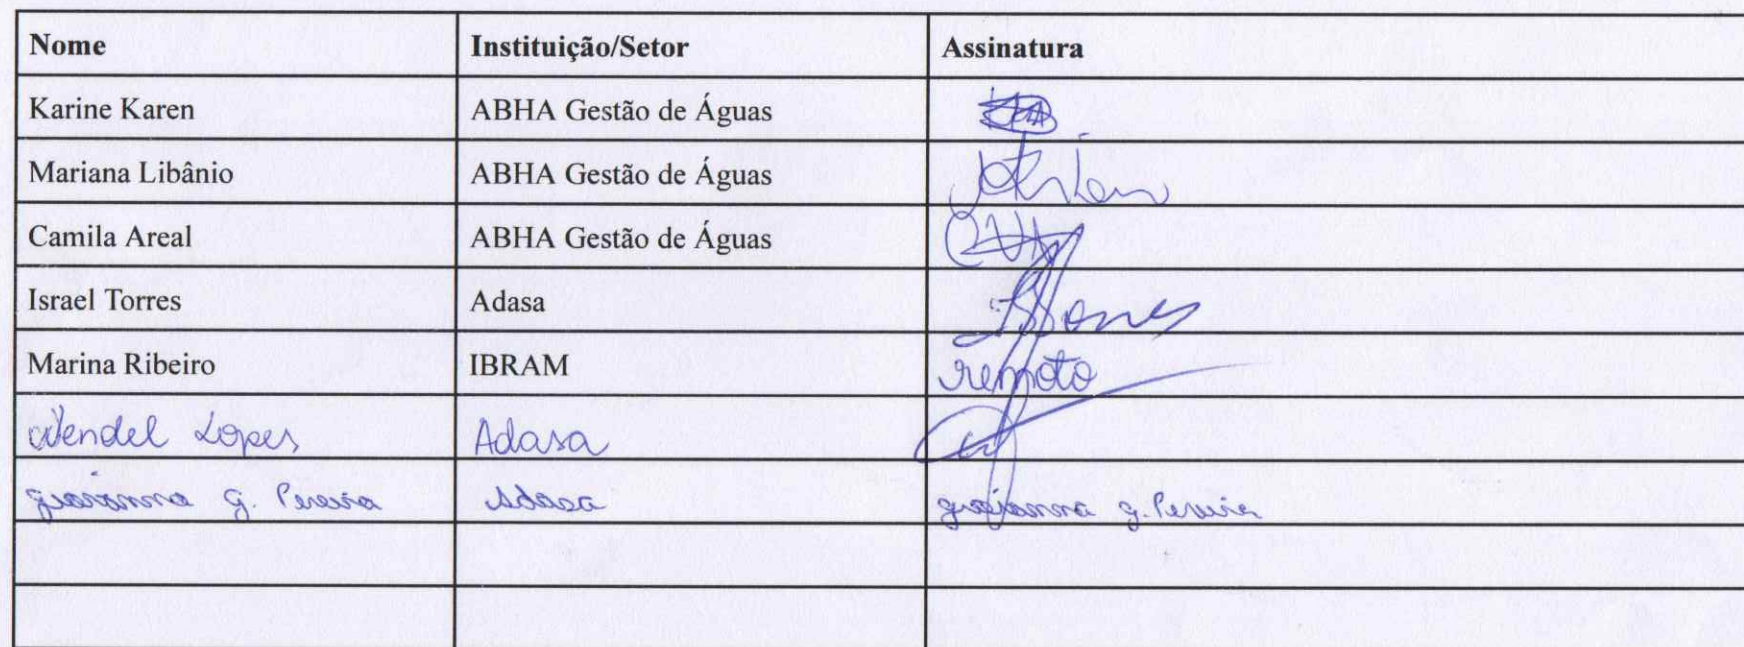 Nome Instituição/Setor Assinatura
Karine Karen ABHA Gestão de Águas
Mariana Libânio ABHA Gestão de Águas
Camila Areal ABHA Gestão de Águas
Israel Torres Adasa
Marina Ribeiro IBRAM remoto
Wendel Lopes Adasa
Giovanna G. Pereira Adasa Giovanna G. Pereira